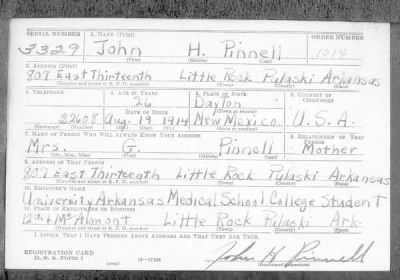 SERIAL NUMBER 1. NAME (Print) ORDER NUMBER
3329 John H. Pinnell 1014
2. ADDRESS (Print)
807 East Thirteenth Little Rock Pulaski Arkansas
(Number and street or R. F. D. number) (Town) (County) (State)
3. TELEPHONE 4. AGE IN YEARS 5. PLACE OF BIRTH 6. COUNTRY OF CITIZENSHIP
26 Dayton
DATE OF BIRTH (Town or county)
22608 Aug. 19 1914 New Mexico U.S.A.
(Exchange) (Number) (Mo.) (Day) (Yr.) (State or country)
7. NAME OF PERSON WHO WILL ALWAYS KNOW YOUR ADDRESS 8. RELATIONSHIP OF THAT PERSON
Mrs. G. Pinnell Mother
(Mr., Mrs., Miss) (First) (Middle) (Last)
9. ADDRESS OF THAT PERSON
807 East Thirteenth Little Rock Pulaski Arkansas
(Number and street or R. F. D. number) (Town) (County) (State)
10. EMPLOYER'S NAME
University Arkansas Medical School College Student
11. PLACE OF EMPLOYMENT OR BUSINESS
12th & McAlmont Little Rock Pulaski Ark.
(Number and street or R. F. D. number) (Town) (County) (State)
I AFFIRM THAT I HAVE VERIFIED ABOVE ANSWERS AND THAT THEY ARE TRUE.
REGISTRATION CARD
D. S. S. Form 1 16-17105 John H Pinnell
(Registrant's signature)